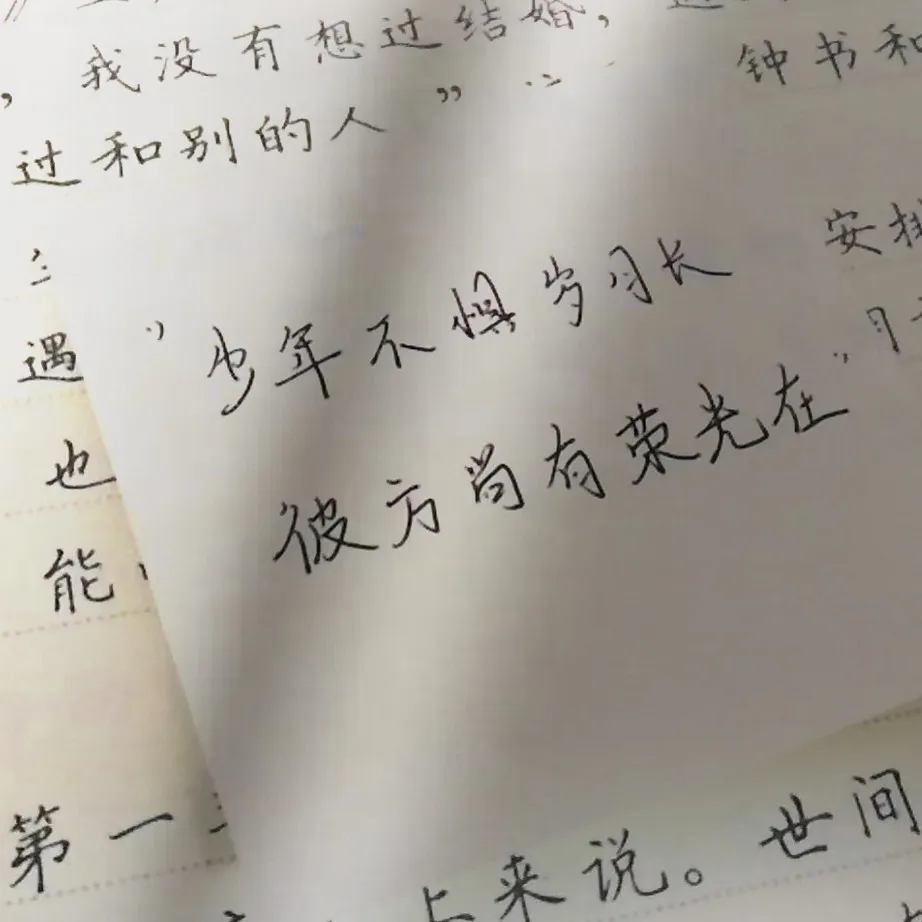 ，我没有想过结婚，
钟书和
过和别的人”
安排
遇
“少年不惧岁月长
月
也
彼方尚有荣光在”
能
第一
上来说。世间